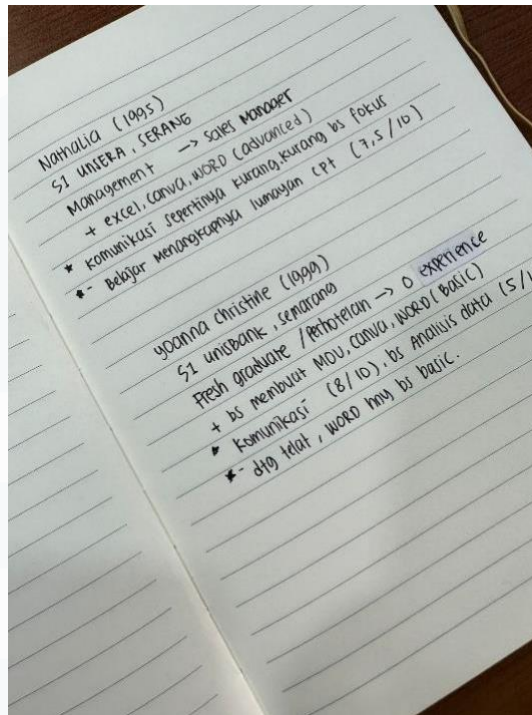 Nathalia (1995)
S1 UNSERA, SERANG
Management → Sales Manager
+ excel, canva, WORD (advanced)
* komunikasi sepertinya kurang, kurang bs fokus
*- Belajar menangkapnya lumayan cpt (7,5/10)
yoanna christine (1999)
S1 unisbank, semarang
Fresh graduate /perhotelan → 0 experience
+ bs membuat MOU, canva, WORD (Basic)
* komunikasi (8/10), bs Analisis data (5/1
*- dtg telat, WORD hny bs basic.